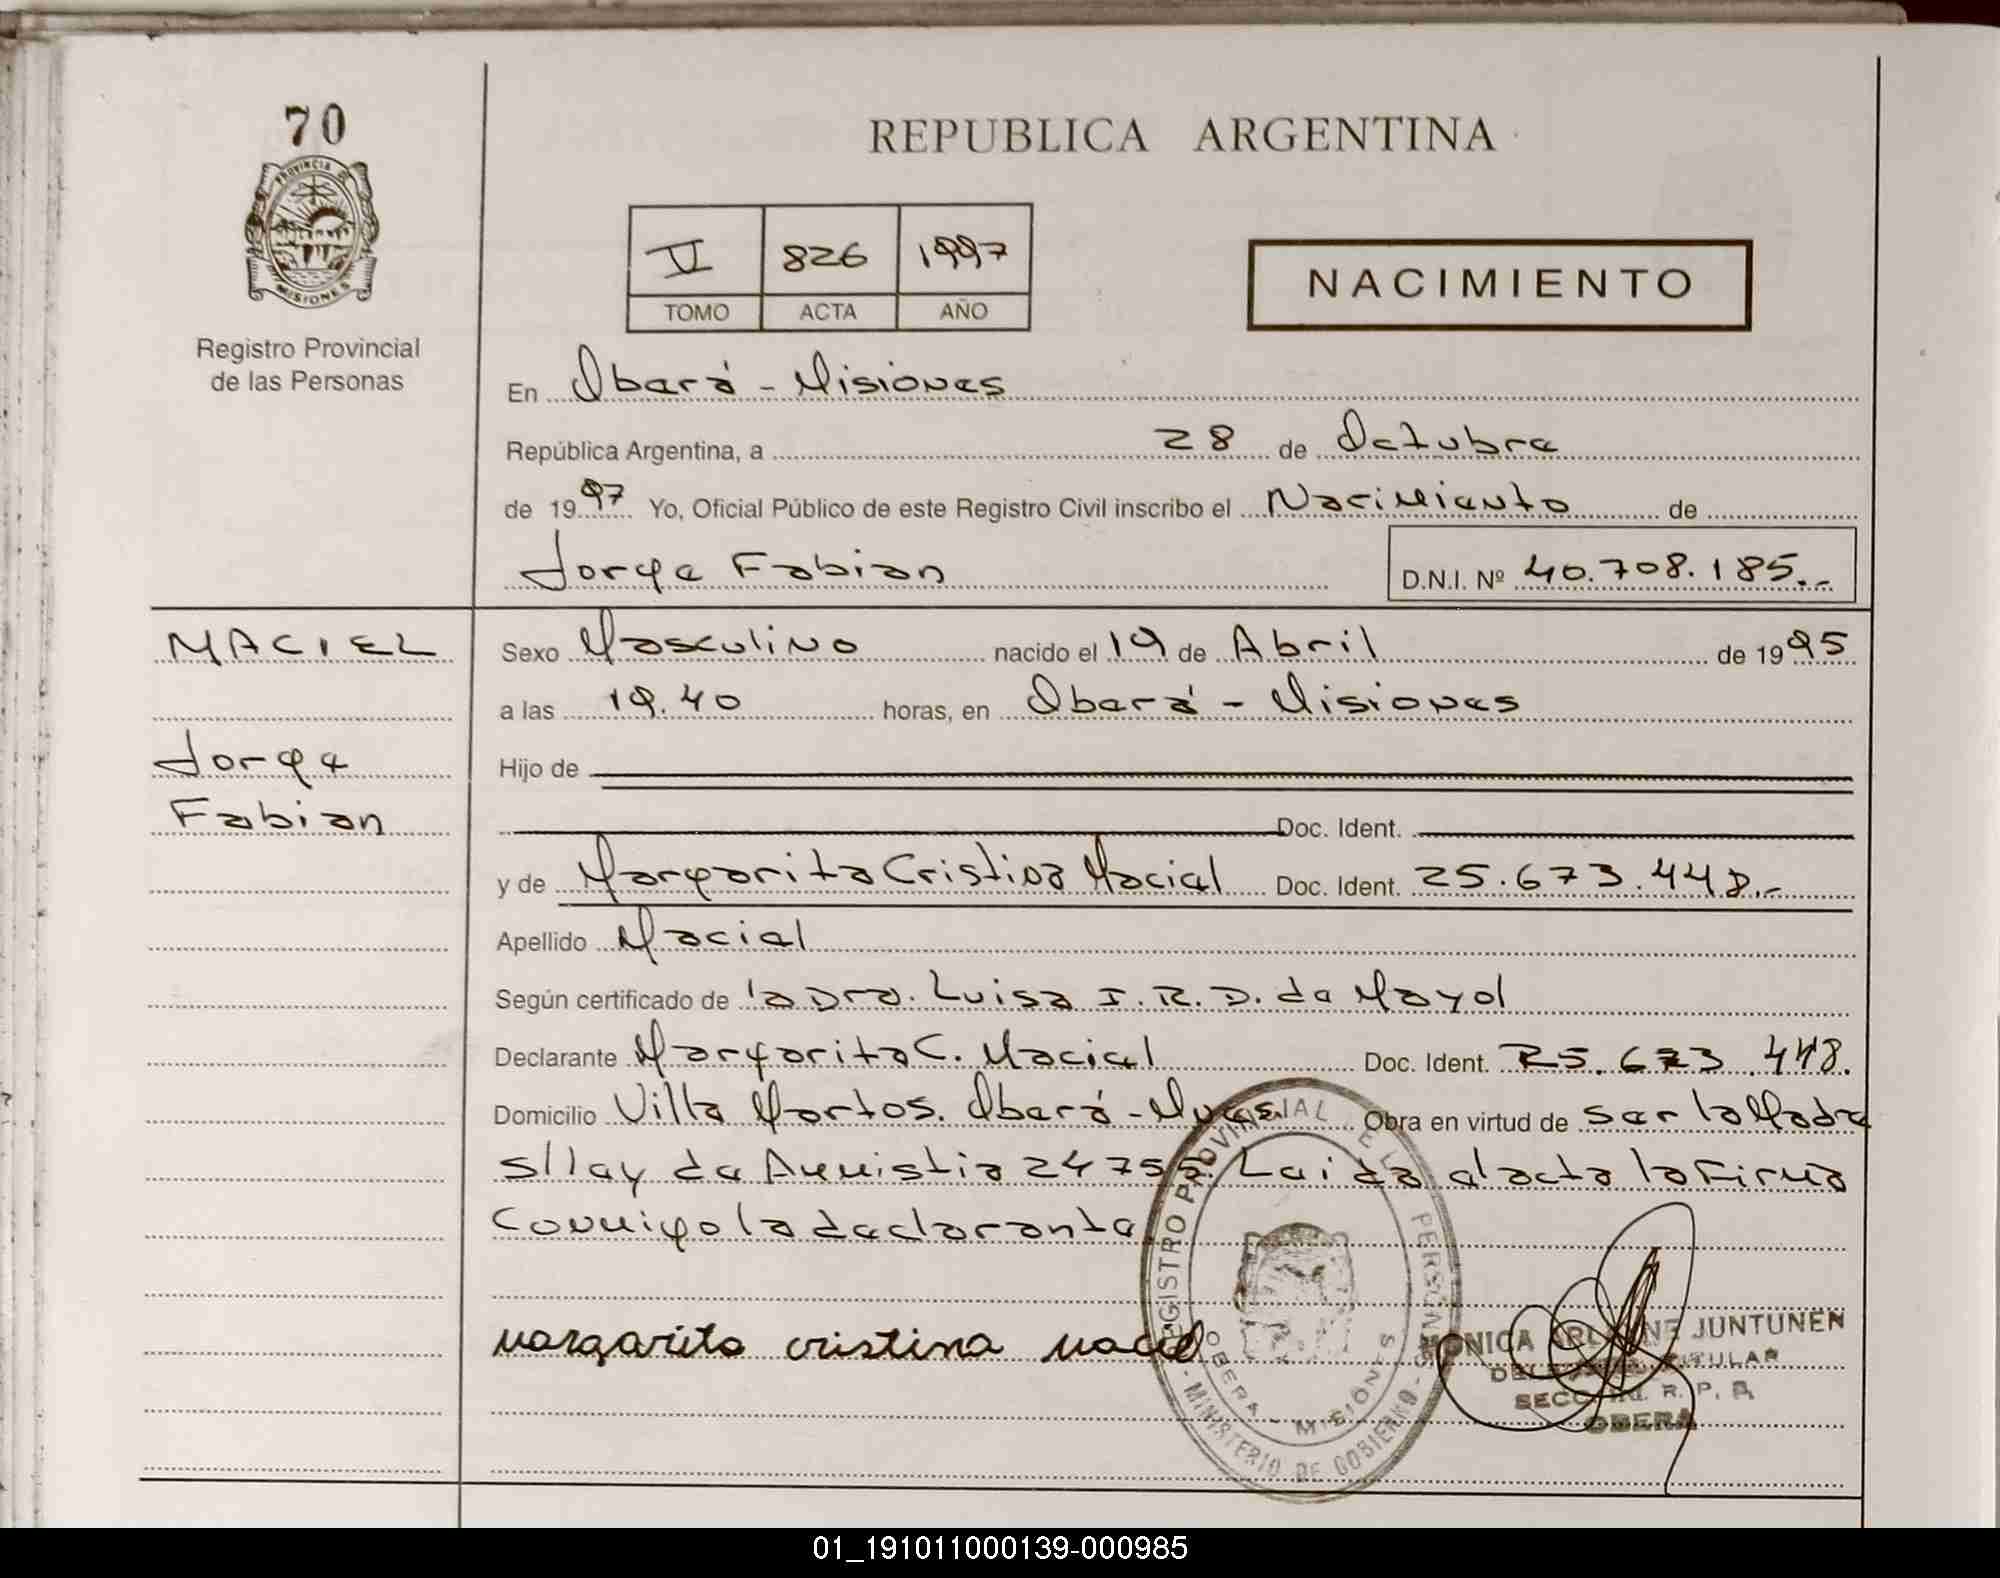 70
PROVINCIA DE
MISIONES
Registro Provincial
de las Personas
REPUBLICA ARGENTINA
VI 826 1997
TOMO ACTA AÑO
NACIMIENTO
En Oberá - Misiones
República Argentina, a 28 de Octubre
de 1997 Yo, Oficial Público de este Registro Civil inscribo el Nacimiento de
Jorge Fabian D.N.I. Nº 40.708.185.-
MACIEL
Jorge
Fabian
Sexo Masculino nacido el 19 de Abril de 1995
a las 19.40 horas, en Oberá - Misiones
Hijo de
Doc. Ident.
y de Margarita Cristina Maciel Doc. Ident. 25.673.448.-
Apellido Maciel
Según certificado de la Dra. Luisa I. R. D. de Mayol
Declarante Margarita C. Maciel Doc. Ident. 25.673.448.
Domicilio Villa Martos. Oberá - Mnes. Obra en virtud de ser la Madre
s/ley de Amnistia 24755. Leida el acta la Firma
Conmigo la declarante
margarita cristina maciel
REGISTRO PROVINCIAL DE L PERSONAS
- MINISTERIO DE GOBIERNO -
OBERA - MISIONES
MONICA JUNTUNEN
TITULAR
SECC. R. P. P.
OBERA
01_191011000139-000985